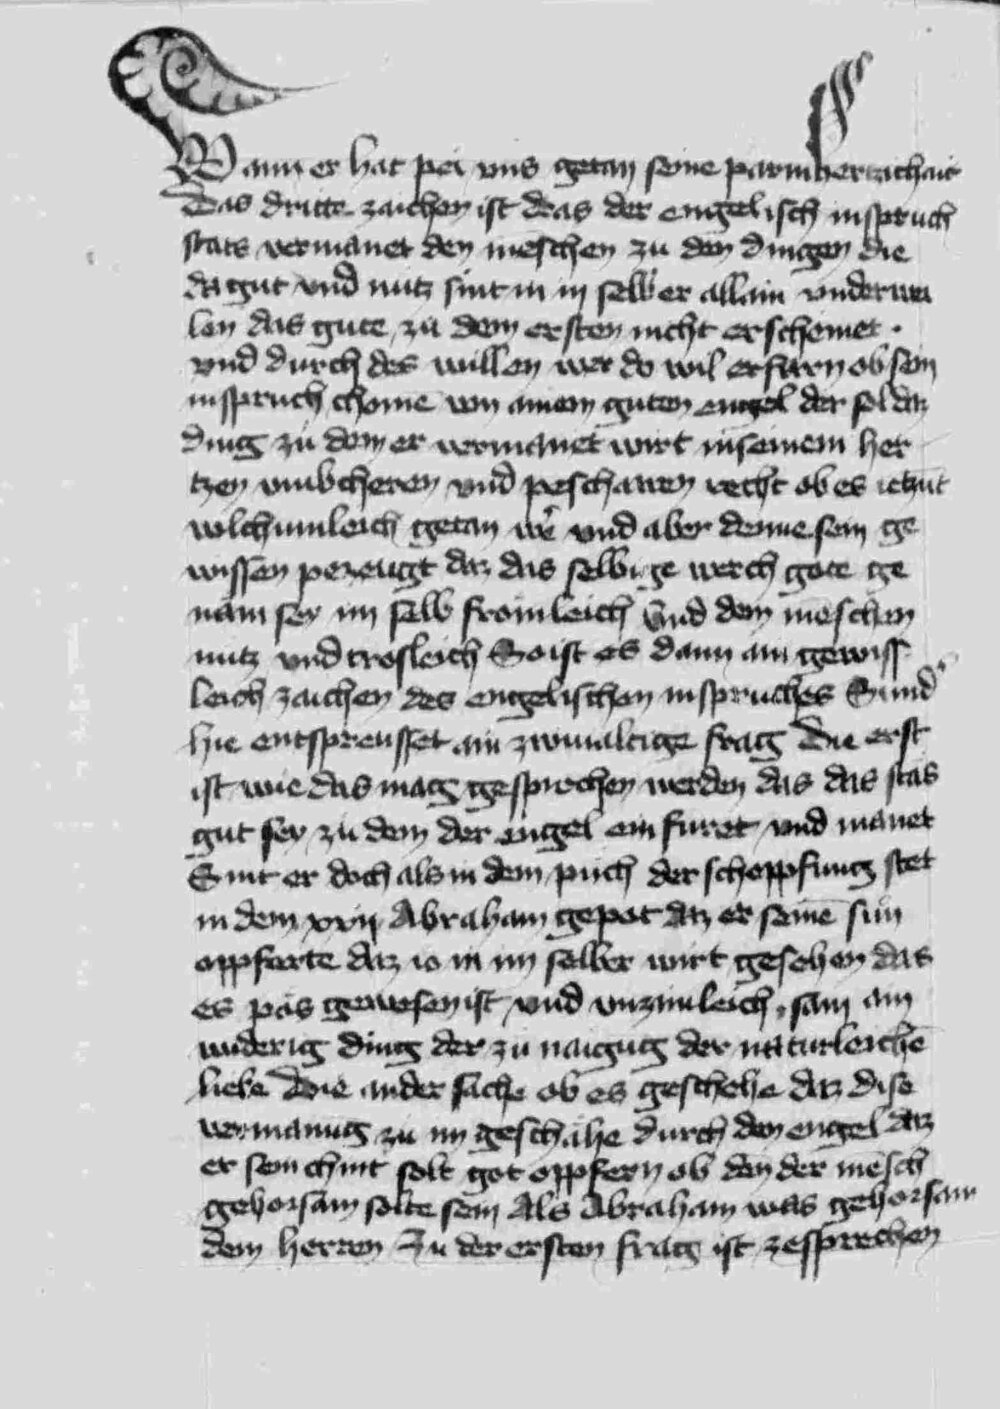 Wann er hat pei vns getan seine parmherczichait
Das dritte zaichen ist das der engelisch inspruch
stats vermanet den mēschen zu den dingen die
da gut vnd nutz sint in in selber allain vnderwei
len das gute zu dem ersten nicht erscheinet ·
vnd durch des willen wer do wil erfarn ob sein
inspruch chome von ainem guten engel der sol daz
ding zu dem er vermanet wirt in seinem her
tzen vmbcheren vnd peschawen recht ob es ietzūt
wilchumleich getan wer vnd aber denne sein ge
wissen pezeugt daz das selbige werch gote ge
nam sey im selb fromleich vnd dem mēschen
nutz vnd trosleich So ist es dann ain gewiss
leich zaichen des engelischen inspruches Sund
hie entspreusset ain zwiualtige frag Die erst
ist wie das mag gesprochen werden das das stas
gut sey zu dem der engel ein furet vnd manet
Sint er doch als in dem puch der schoppfung stet
in dem xxij Abraham gepot daz er seinē sun
oppferte daz io in im selber wirt gesehen das
es pas gewesen ist vnd vnzimleich sam ain
widerig ding der zu naigūg der naturleichē
liebe Die ander sache ob es geschehe daz dise
vermanūg zu im geschahe durch den engel daz
er sein chint solt got oppfern ob den der mēsch
gehorsam solte sein Als Abraham was gehorsam
dem herren Zu der ersten frag ist zesprechen